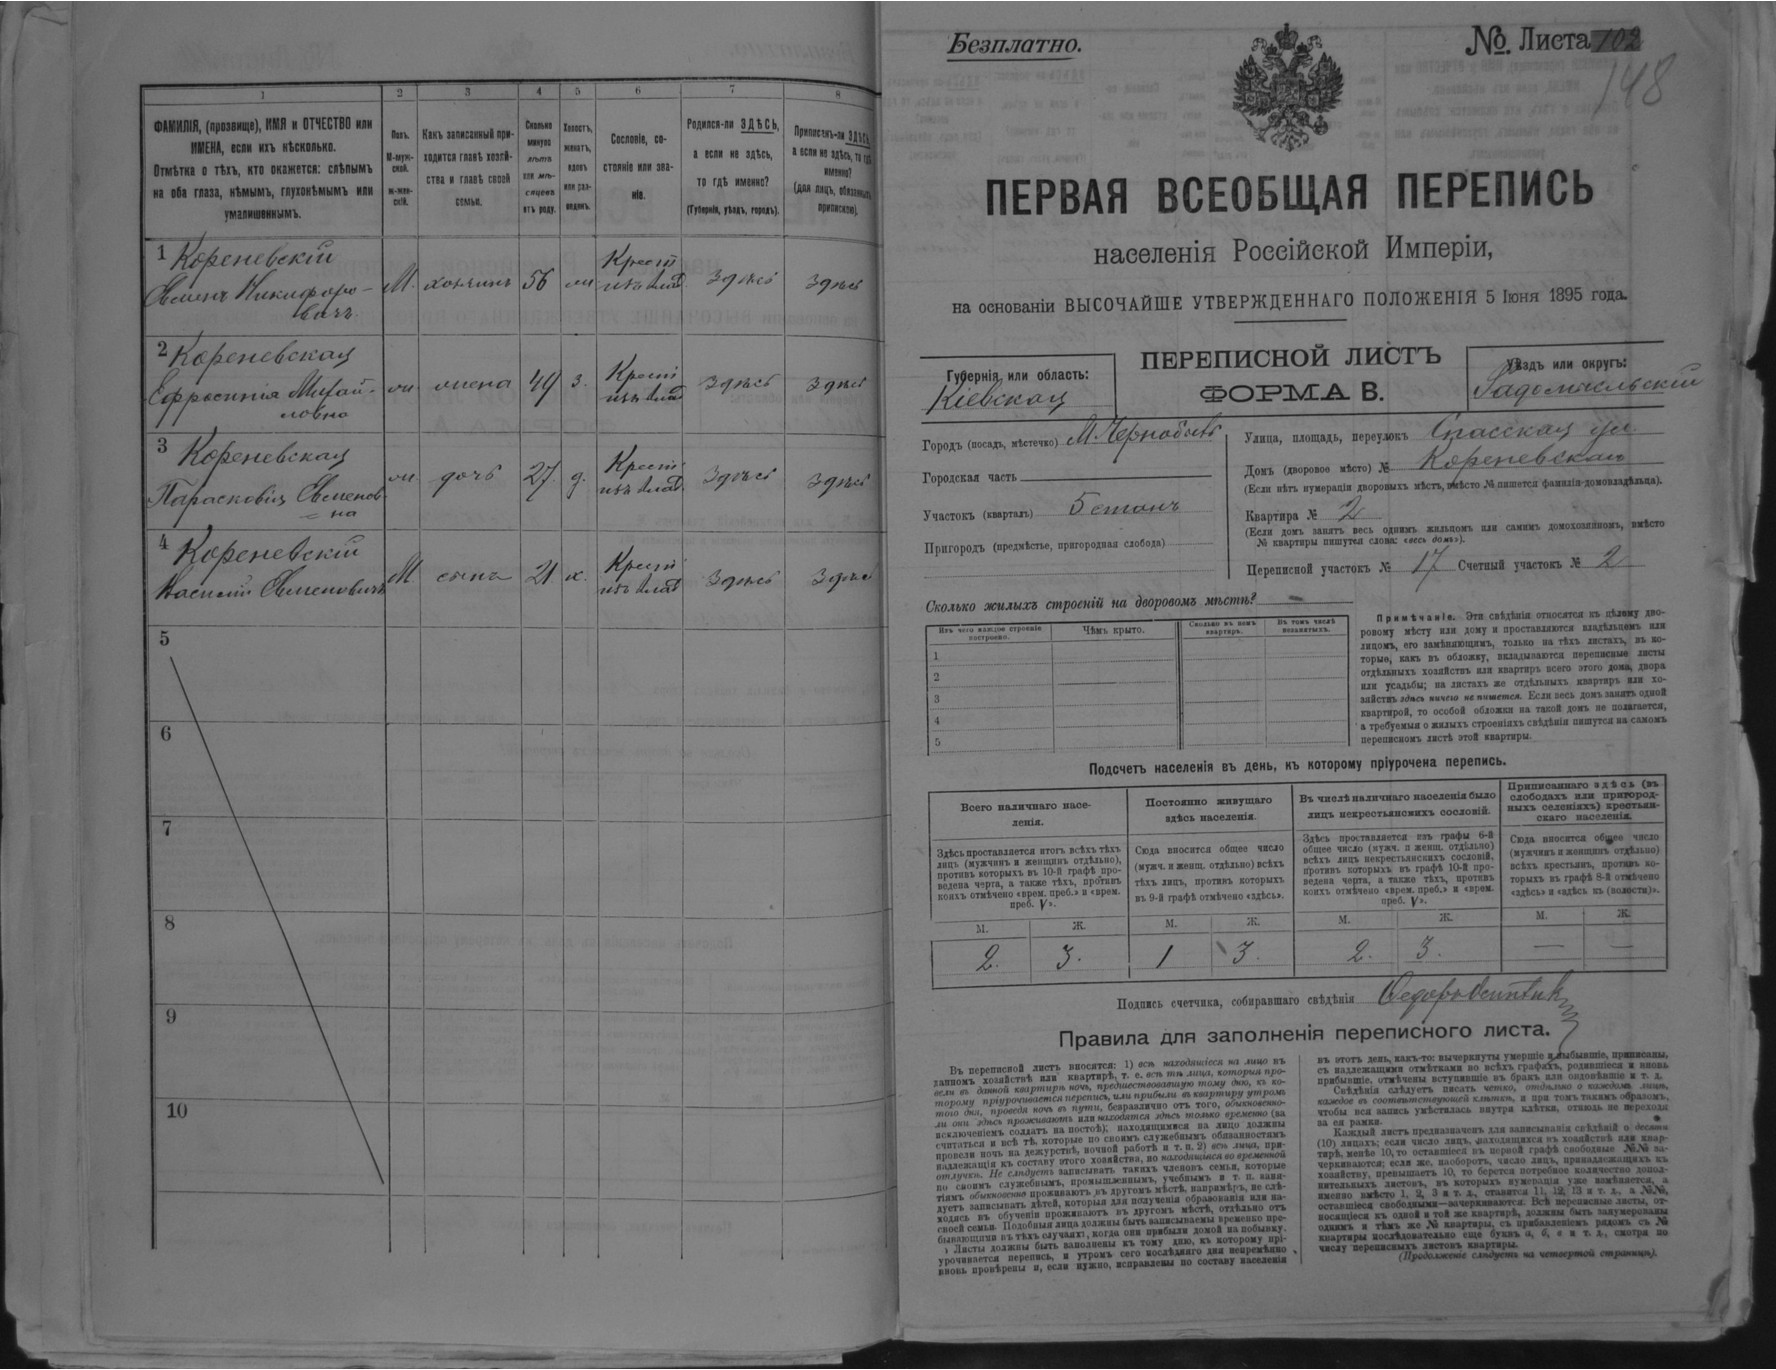 1
2
3
4
5
6
7
8
ФАМИЛІЯ, (прозвище), ИМЯ и ОТЧЕСТВО или
ИМЕНА, если ихъ нѣсколько.
Отмѣтка о тѣхъ, кто окажется: слѣпымъ
на оба глаза, нѣмымъ, глухонѣмымъ или
умалишеннымъ.
Полъ.
М-муж-
ской.
Ж-жен-
скій.
Какъ записанный при-
ходится главѣ хозяй-
ства и главѣ своей
семьи.
Сколько
минуло
лѣтъ
или мѣ-
сяцевъ
отъ роду.
Холостъ,
женатъ,
вдовъ
или раз-
веденъ.
Сословіе, со-
стояніе или зва-
ніе.
Родился-ли ЗДѢСЬ,
а если не здѣсь,
то гдѣ именно?
(Губернія, уѣздъ, городъ).
Приписанъ-ли ЗДѢСЬ,
а если не здѣсь, то гдѣ
именно?
(для лицъ, обязанныхъ
припискою).
1 Кореневскій
Евменъ Никифоро-
вичъ
М. хозяинъ 56 Крест Здѣсь Здѣсь
2 Кореневская
Ефросинія Михай-
ловна
жена 49 з. Крест Здѣсь Здѣсь
3 Кореневская
Парасковія Евменов
на
дочь 27 д. Крест Здѣсь Здѣсь
4 Кореневскій
Василій Евменовичъ
М сынъ 21 х. Крест Здѣсь Здѣсь
5
6
7
8
9
10
Безплатно.
№ Листа 102
148
ПЕРВАЯ ВСЕОБЩАЯ ПЕРЕПИСЬ
населенія Россійской Имперіи,
на основаніи ВЫСОЧАЙШЕ УТВЕРЖДЕННАГО ПОЛОЖЕНІЯ 5 Іюня 1895 года.
Губернія или область:
Кіевская
ПЕРЕПИСНОЙ ЛИСТЪ
ФОРМА В.
Уѣздъ или округъ:
Радомысльскій
Городъ (посадъ, мѣстечко) М. Чернобыль
Городская часть
Участокъ (кварталъ) 5 станъ
Пригородъ (предмѣстье, пригородная слобода)
Улица, площадь, переулокъ Спасская ул.
Домъ (дворовое мѣсто) № Кореневская
(Если нѣтъ нумераціи дворовыхъ мѣстъ, вмѣсто № пишется фамилія домовладѣльца).
Квартира № 2
(Если домъ занятъ весь однимъ жильцомъ или самимъ домохозяиномъ, вмѣсто
№ квартиры пишутся слова: «весь домъ»).
Переписной участокъ № 17 Счетный участокъ № 2
Сколько жилыхъ строеній на дворовомъ мѣстѣ? —
Изъ чего каждое строеніе
построено.
Чѣмъ крыто.
Сколько въ немъ
квартиръ.
Въ томъ числѣ
незанятыхъ.
1
2
3
4
5
Примѣчаніе. Эти свѣдѣнія относятся къ цѣлому дво-
ровому мѣсту или дому и проставляются владѣльцемъ или
лицомъ, его замѣняющимъ, только на тѣхъ листахъ, въ ко-
торые, какъ въ обложку, вкладываются переписные листы
отдѣльныхъ хозяйствъ или квартиръ всего этого дома, двора
или усадьбы; на листахъ же отдѣльныхъ квартиръ или хо-
зяйствъ здѣсь ничего не пишется. Если весь домъ занятъ одной
квартирой, то особой обложки на такой домъ не полагается,
а требуемыя о жилыхъ строеніяхъ свѣдѣнія пишутся на самомъ
переписномъ листѣ этой квартиры.
Подсчетъ населенія въ день, къ которому пріурочена перепись.
Всего наличнаго насе-
ленія.
Постоянно живущаго
здѣсь населенія.
Въ числѣ наличнаго населенія было
лицъ некрестьянскихъ сословій.
Приписаннаго здѣсь (въ
слободахъ или пригород-
ныхъ селеніяхъ) крестьян-
скаго населенія.
Здѣсь проставляется итогъ всѣхъ тѣхъ
лицъ (мужчинъ и женщинъ отдѣльно),
противъ которыхъ въ 10-й графѣ про-
ведена черта, а также тѣхъ, противъ
коихъ отмѣчено «врем. преб.» и «врем.
преб. V».
Сюда вносится общее число
(мужч. и женщ. отдѣльно) всѣхъ
тѣхъ лицъ, противъ которыхъ
въ 9-й графѣ отмѣчено «здѣсь».
Здѣсь проставляется изъ графы 6-й
общее число (мужч. и женщ. отдѣльно)
всѣхъ лицъ некрестьянскихъ сословій,
противъ которыхъ въ графѣ 10-й про-
ведена черта, а также тѣхъ, противъ
коихъ отмѣчено «врем. преб.» и «врем.
преб. V».
Сюда вносится общее число
(мужчинъ и женщинъ отдѣльно)
всѣхъ крестьянъ, противъ ко-
торыхъ въ графѣ 8-й отмѣчено
«здѣсь» и «здѣсь къ (волости)».
М. Ж. М. Ж. М. Ж. М. Ж.
2. 3. 1 3. 2. 3. — —
Подпись счетчика, собиравшаго свѣдѣнія
Правила для заполненія переписного листа.
Въ переписной листъ вносятся: 1) всѣ находящіеся на лицо въ
данномъ хозяйствѣ или квартирѣ, т. е. всѣ тѣ лица, которыя про-
вели въ данной квартирѣ ночь, предшествовавшую тому дню, къ ко-
торому пріурочивается перепись, или прибыли въ квартиру утромъ
того дня, проведя ночь въ пути, безразлично отъ того, обыкновенно-
ли они здѣсь проживаютъ или находятся здѣсь только временно (за
исключеніемъ солдатъ на постоѣ); находящимися на лицо должны
считаться и всѣ тѣ, которые по своимъ служебнымъ обязанностямъ
провели ночь на дежурствѣ, ночной работѣ и т. п. 2) всѣ лица, при-
надлежащія къ составу этого хозяйства, но находящіяся во временной
отлучкѣ. Не слѣдуетъ записывать такихъ членовъ семьи, которые
по своимъ служебнымъ, промышленнымъ, учебнымъ и т. п. заня-
тіямъ обыкновенно проживаютъ въ другомъ мѣстѣ, напримѣръ, не слѣ-
дуетъ записывать дѣтей, которыя для полученія образованія или на-
ходясь въ обученіи проживаютъ въ другомъ мѣстѣ, отдѣльно отъ
своей семьи. Подобныя лица должны быть записываемы временно пре-
бывающими въ тѣхъ случаяхъ, когда они прибыли домой на побывку.
Листы должны быть заполнены къ тому дню, къ которому прі-
урочивается перепись, и утромъ сего послѣдняго дня непремѣнно
вновь провѣрены и, если нужно, исправлены по составу населенія
въ этотъ день, какъ-то: вычеркнуты умершіе и выбывшіе, приписаны,
съ надлежащими отмѣтками во всѣхъ графахъ, родившіеся и вновь
прибывшіе, отмѣчены вступившіе въ бракъ или овдовѣвшіе и т. д.
Свѣдѣнія слѣдуетъ писать четко, отдѣльно о каждомъ лицѣ,
каждое въ соотвѣтствующей клѣткѣ, и при томъ такимъ образомъ,
чтобы вся запись умѣстилась внутри клѣтки, отнюдь не переходя
за ея рамки.
Каждый листъ предназначенъ для записыванія свѣдѣній о десяти
(10) лицахъ; если число лицъ, находящихся въ хозяйствѣ или квар-
тирѣ, менѣе 10, то оставшіеся въ первой графѣ свободные №№ за-
черкиваются; если же, наоборотъ, число лицъ, принадлежащихъ къ
хозяйству, превышаетъ 10, то берется потребное количество допол-
нительныхъ листовъ, въ которыхъ нумерація уже измѣняется, а
именно вмѣсто 1, 2, 3 и т. д., ставятся 11, 12, 13 и т. д., а №№,
оставшіеся свободными—зачеркиваются. Всѣ переписные листы, от-
носящіеся къ одной и той же квартирѣ, должны быть занумерованы
однимъ и тѣмъ же № квартиры, съ прибавленіемъ рядомъ съ №
квартиры послѣдовательно еще буквъ а, б, в и т. д., смотря по
числу переписныхъ листовъ квартиры.
(Продолженіе слѣдуетъ на четвертой страницѣ).